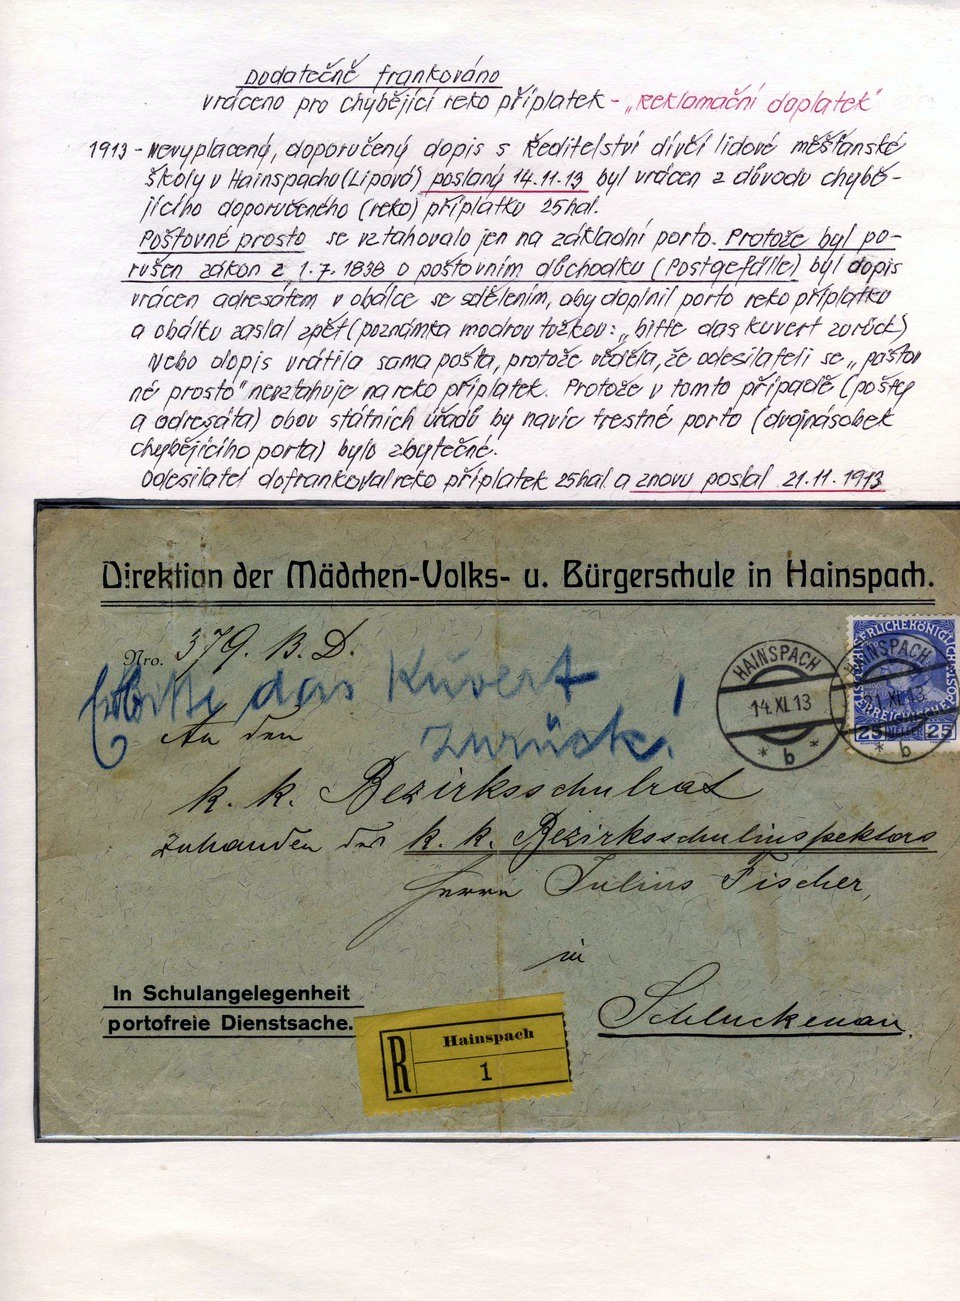 Dodatečně frankováno
vráceno pro chybějící reko příplatek - „Reklamační doplatek"
1913 - Nevyplacený, doporučený dopis s Ředitelství dívčí lidové měšťanské
školy v Hainspachu (Lipová) poslaný 14.11.13 byl vrácen z důvodu chybě-
jícího doporučeného (reko) příplatku 25hal.
Poštovné prosto se vztahovalo jen na základní porto. Protože byl po-
rušen zákon z 1.7.1838 o poštovním důchodku (Postgefälle) byl dopis
vrácen adresátem v obálce se sdělením, aby doplnil porto reko příplatku
a obálku zaslal zpět (poznámka modrou tožkou: „bitte das kuvert zurück)
Nebo dopis vrátila sama pošta, protože věděla, že odesilateli se „poštov
né prosto" nevztahuje na reko příplatek. Protože v tomto případě (pošty
a adresáta) obou státních úřadů by navíc trestné porto (dvojnásobek
chybějícího porta) bylo zbytečné.
Odesilatel dofrankoval reko příplatek 25hal a znovu poslal 21.11.1913
Direktion der Mädchen-Volks- u. Bürgerschule in Hainspach.
Nro. 379. B. D.
Bitte das Kuvert
zurück!
An den
k. k. Bezirksschulrat
zuhanden des k. k. Bezirksschulinspektors
Herrn Julius Fischer
in
Schluckenau.
HAINSPACH
14.XI.13
* b *
HAINSPACH
21.XI.13
* b
25 HELLER 25
In Schulangelegenheit
portofreie Dienstsache.
R
Hainspach
1